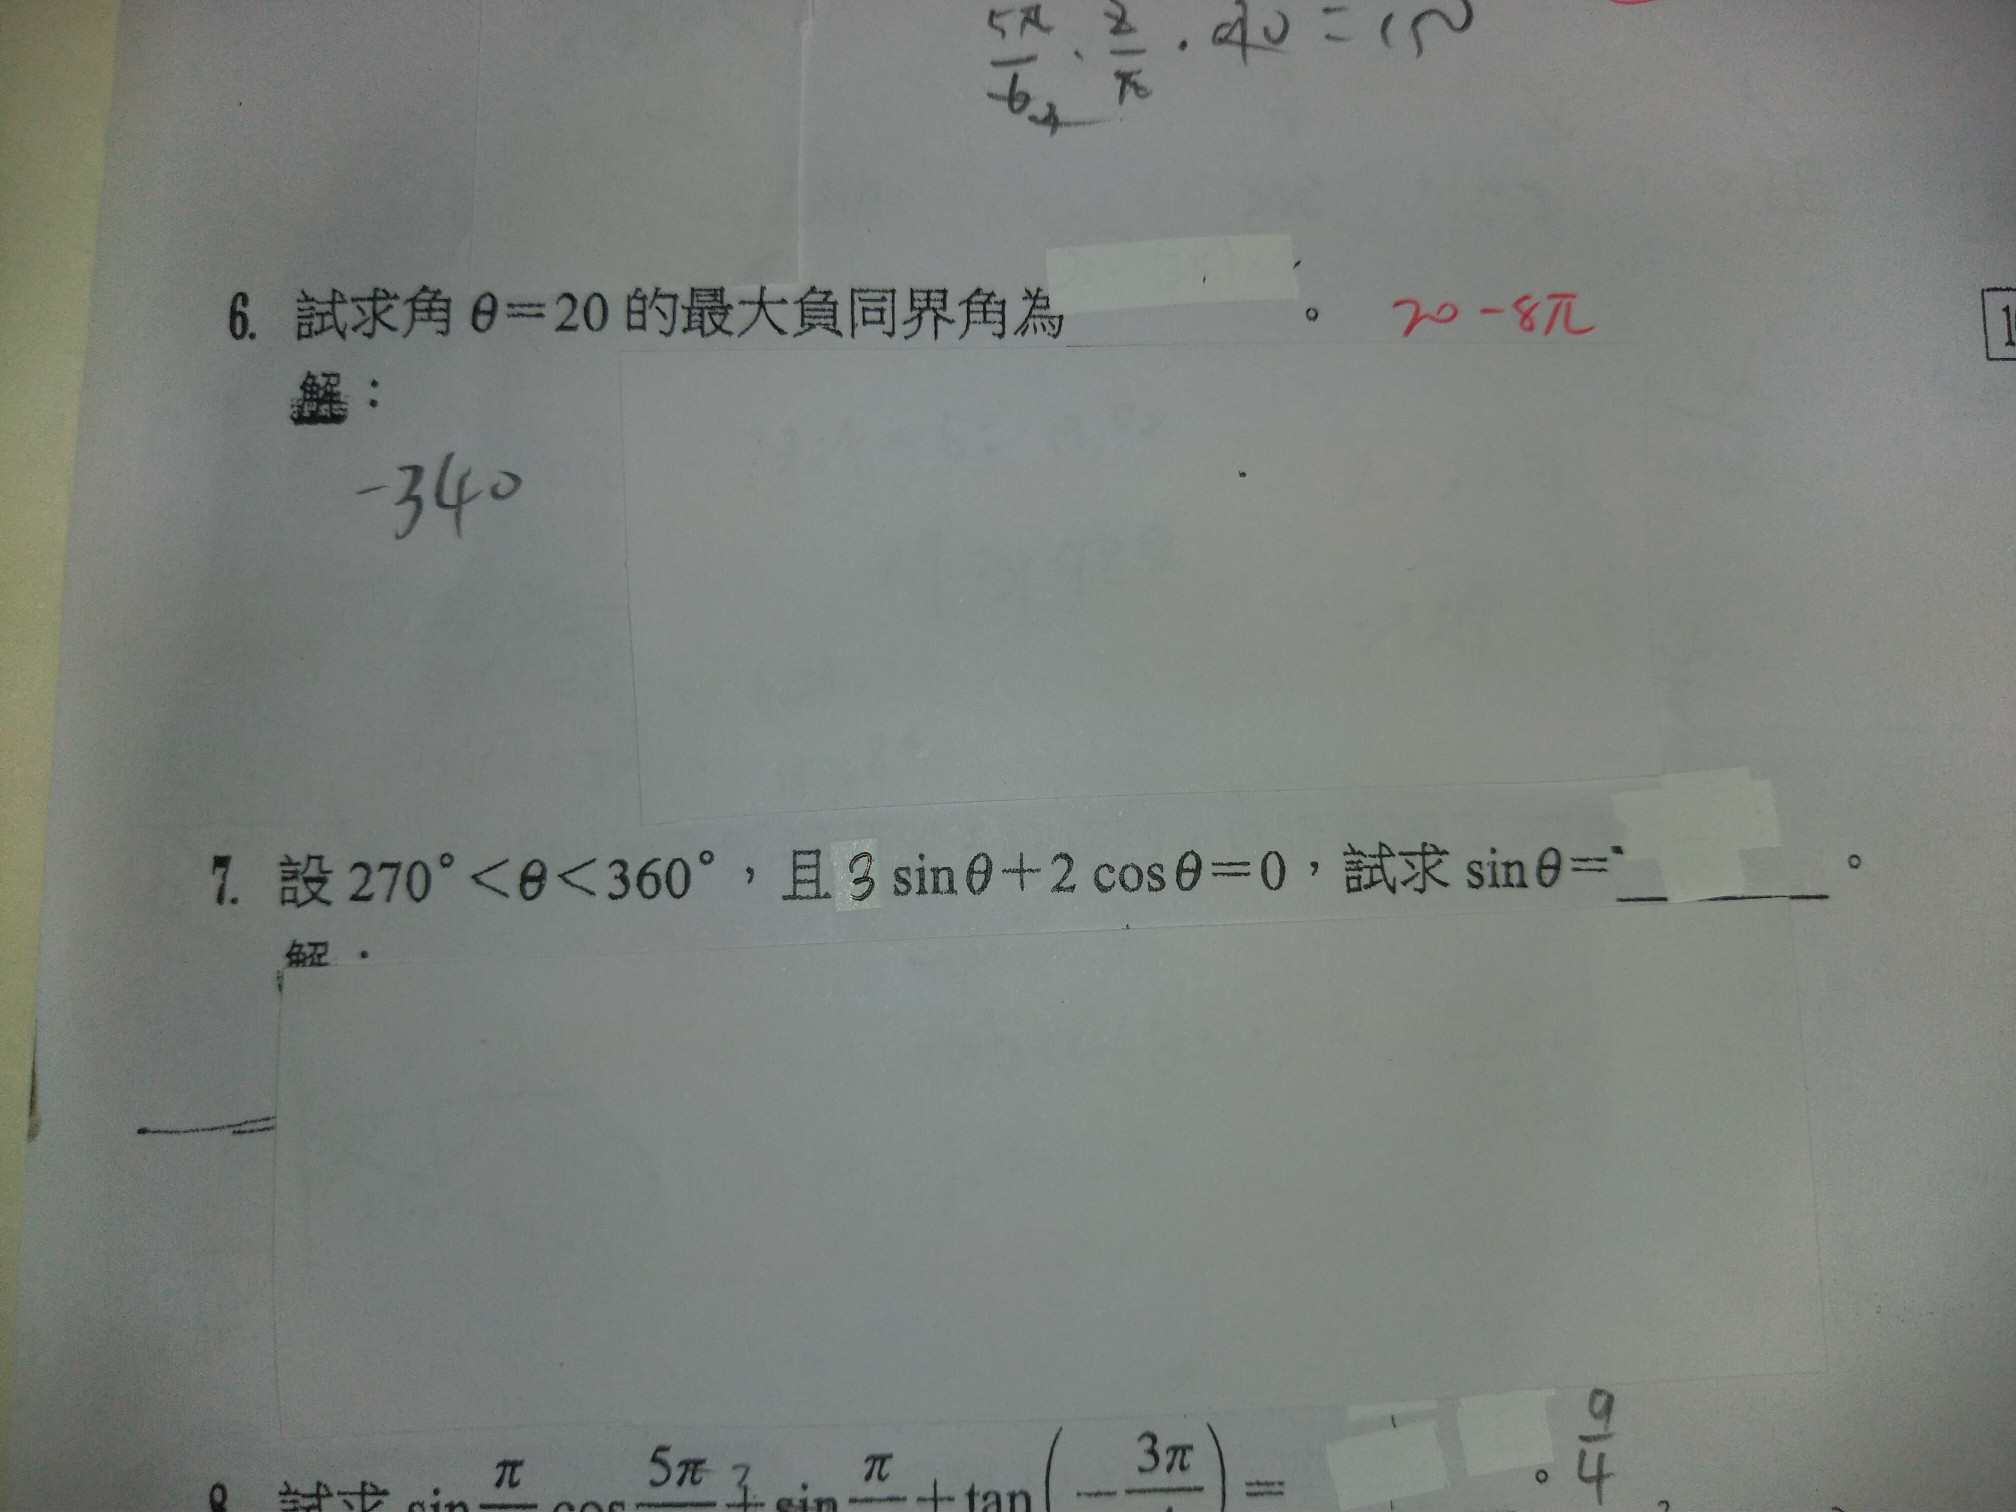 5π/6 · 2/π · 90 = 150
6. 試求角 θ=20 的最大負同界角為 。 20-8π
解：
-340
7. 設 270°<θ<360°，且 3 sinθ+2 cosθ=0，試求 sinθ= 。
解：
9/4
8. 試求 sin π cos 5π + sin π + tan(- 3π ) = 。